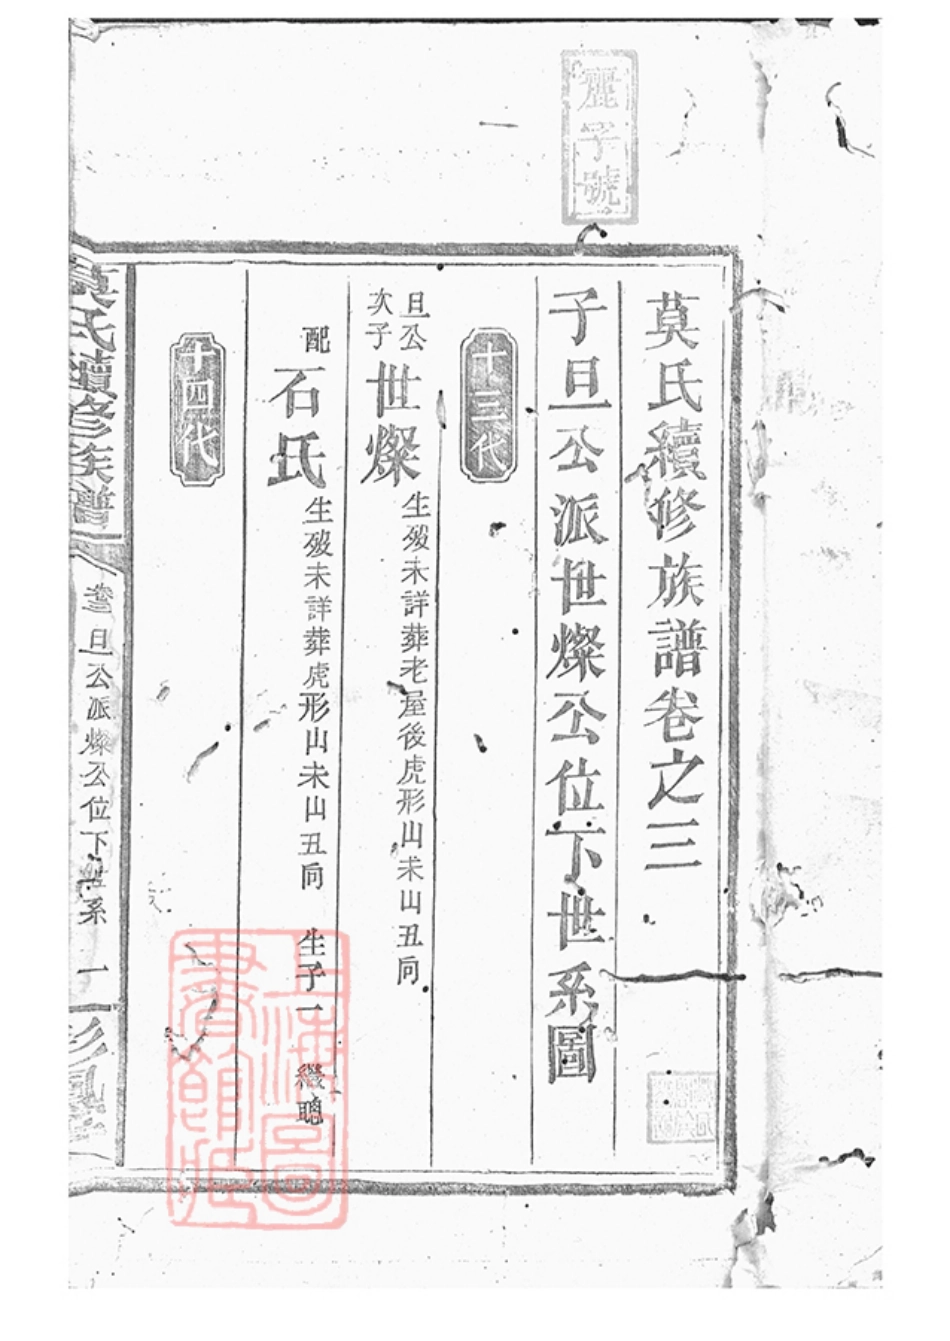 麗字號
莫氏續修族譜卷之三
子旦公派世燦公位下世系圖
十三代
旦公次子 世燦 生歿未詳葬老屋後虎形山未山丑向
配 石氏 生歿未詳葬虎形山未山丑向 生子一 繼聰
十四代
莫氏續修族譜 卷三 旦公派燦公位下世系 一 彭
上海圖書館藏